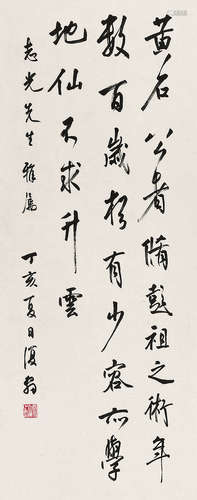 黄石公者脩彭祖之術年
數百歲猶有少容示學
地仙不求升雲
志光先生雅屬
丁亥夏日復翁